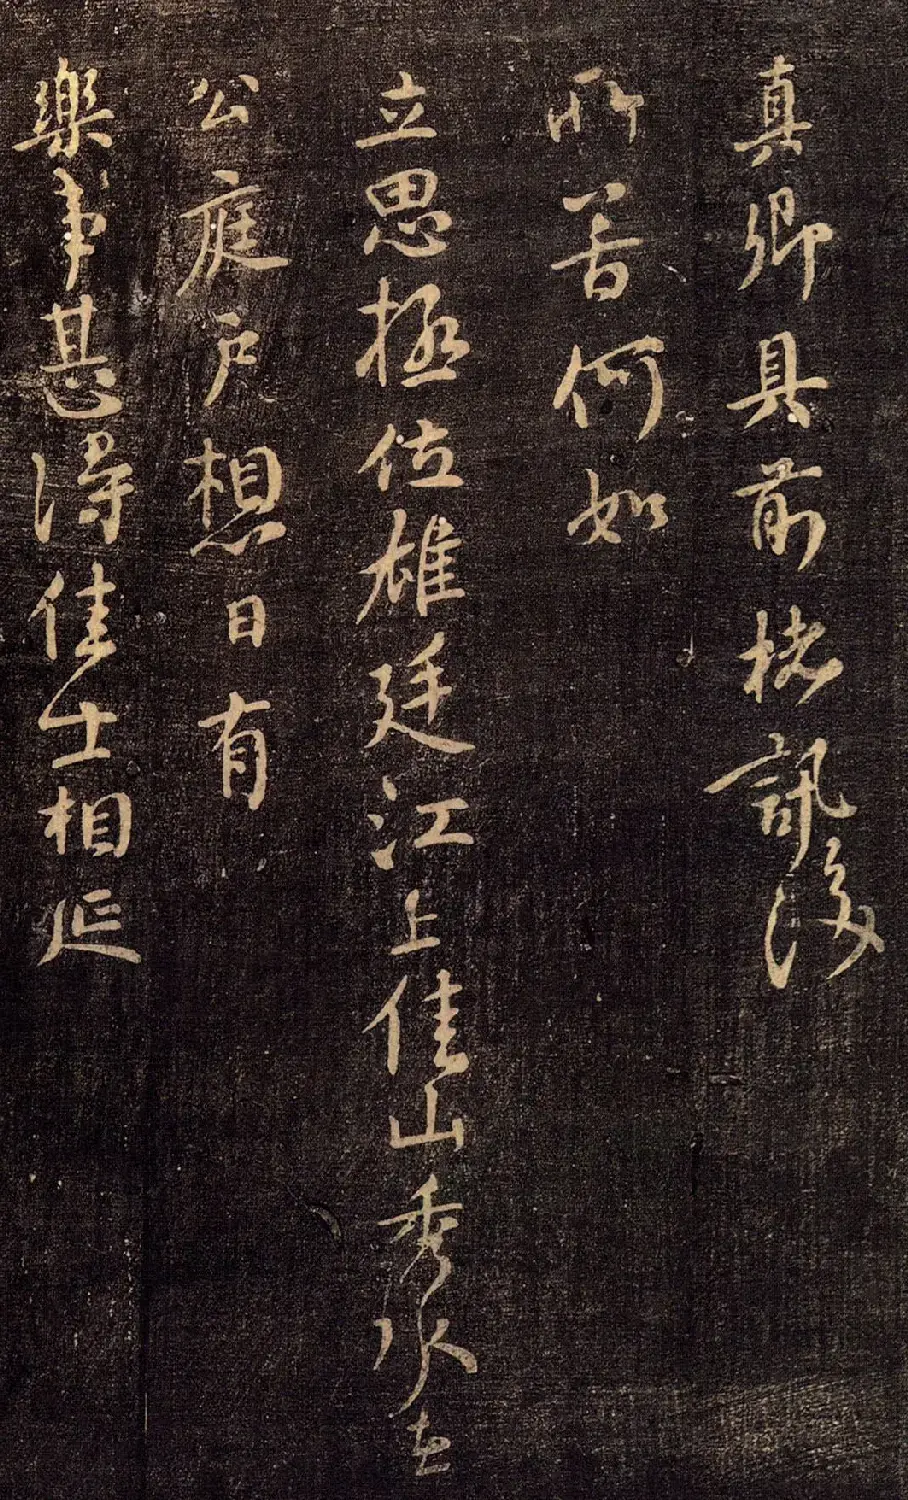 真卿具前楮訊後
所苦何如
立思極位雄廷江上佳山秀水在
公庭户想日有
樂事甚得佳士相延